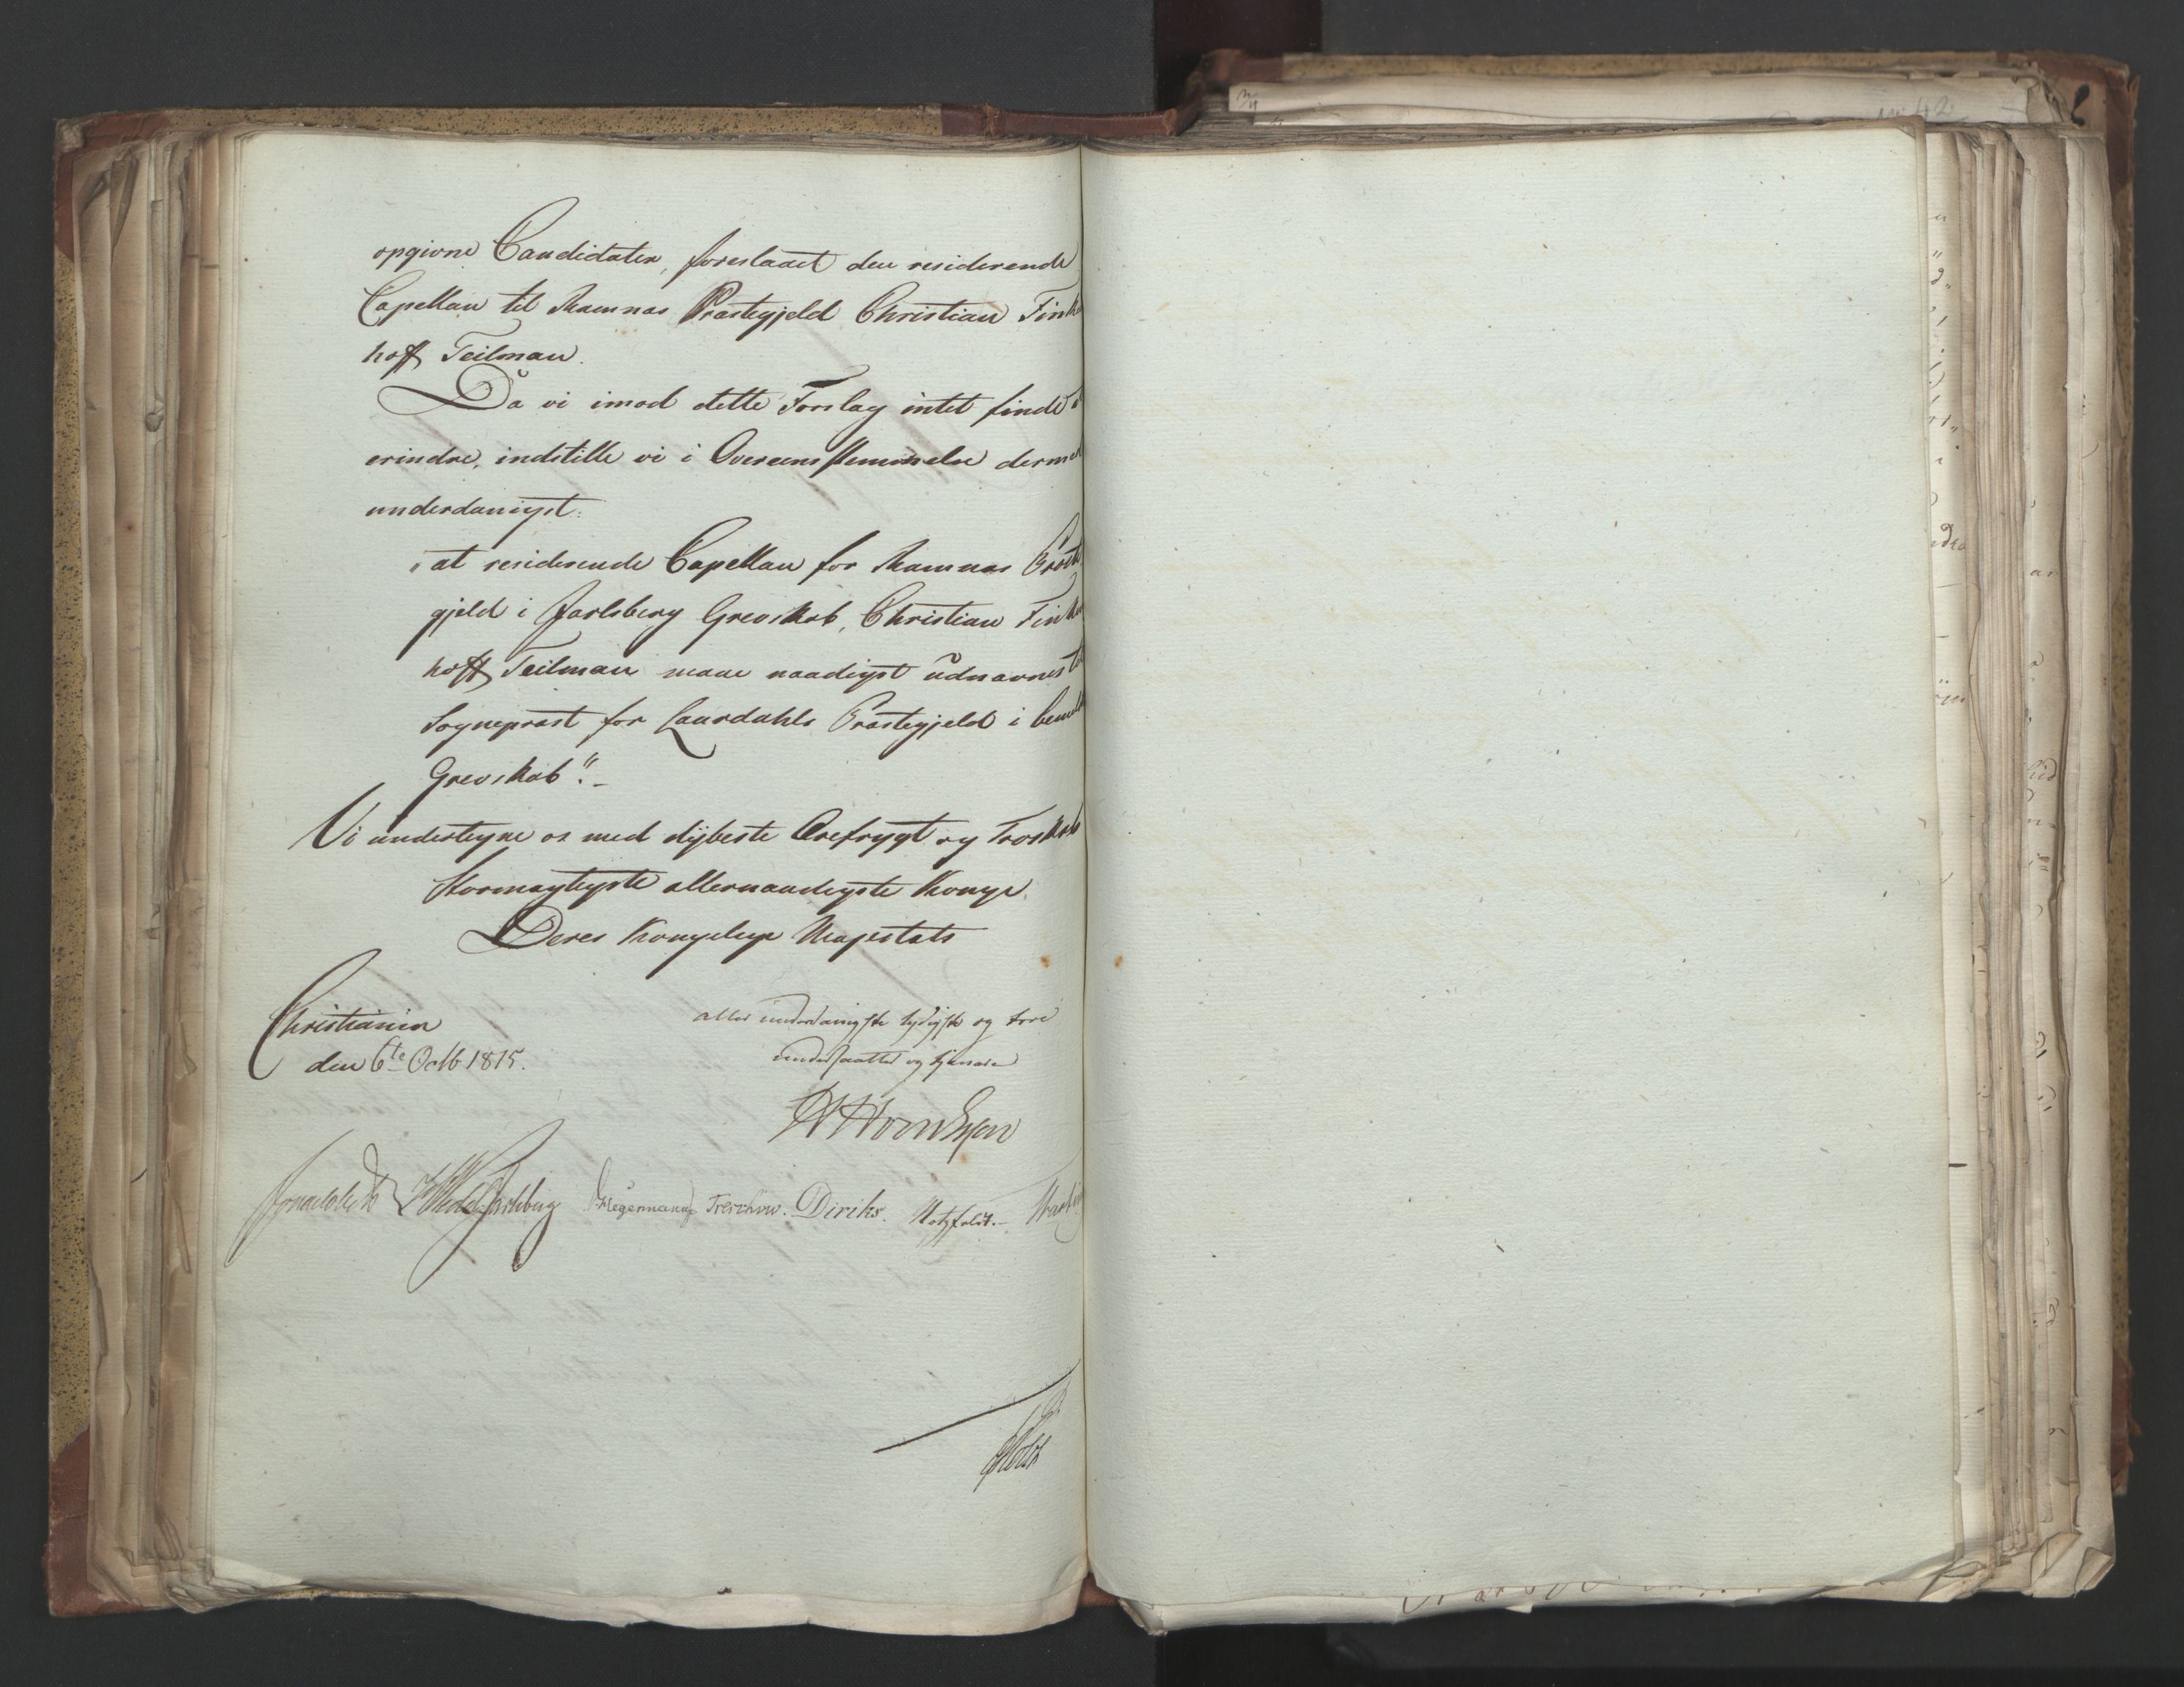 opgivne Candidater, foreslaaet den residerende
Capellan til Ramnæs Præstegjeld Christian Finke
hoff Teilman.
Da vi imod dette Forslag intet finde at
erindre, indstille vi i Overeensstemmelse dermed
underdanigst:
„at residerende Capellan for Ramnæs Præste
gjeld i Jarlsberg Grevskab, Christian Finke
hoff Teilman maae naadigst udnævnes til
Sognepræst for Laurdahls Præstegjeld i bemeldte
Grevskab".
Vi undertegne os med dybeste Ærefrygt og Troskab
Stormægtigste allernaadigste Konge
Deres Kongelige Majestæts
Christiania
den 6te Octb 1815.
allerunderdanigste lydigste og troe
undersaatter og tjenere
Sommerhielm Wedel Jarlsberg Hegermann Treschow. Diriks. Motzfeldt.
Holst